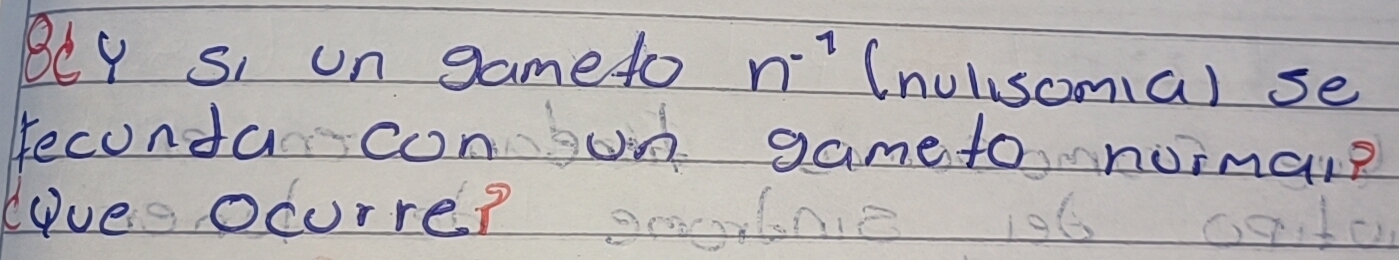 8¿Y si un gameto n-1 (nulisomia) se
fecunda con un gameto normal?
¿Que ocurre?